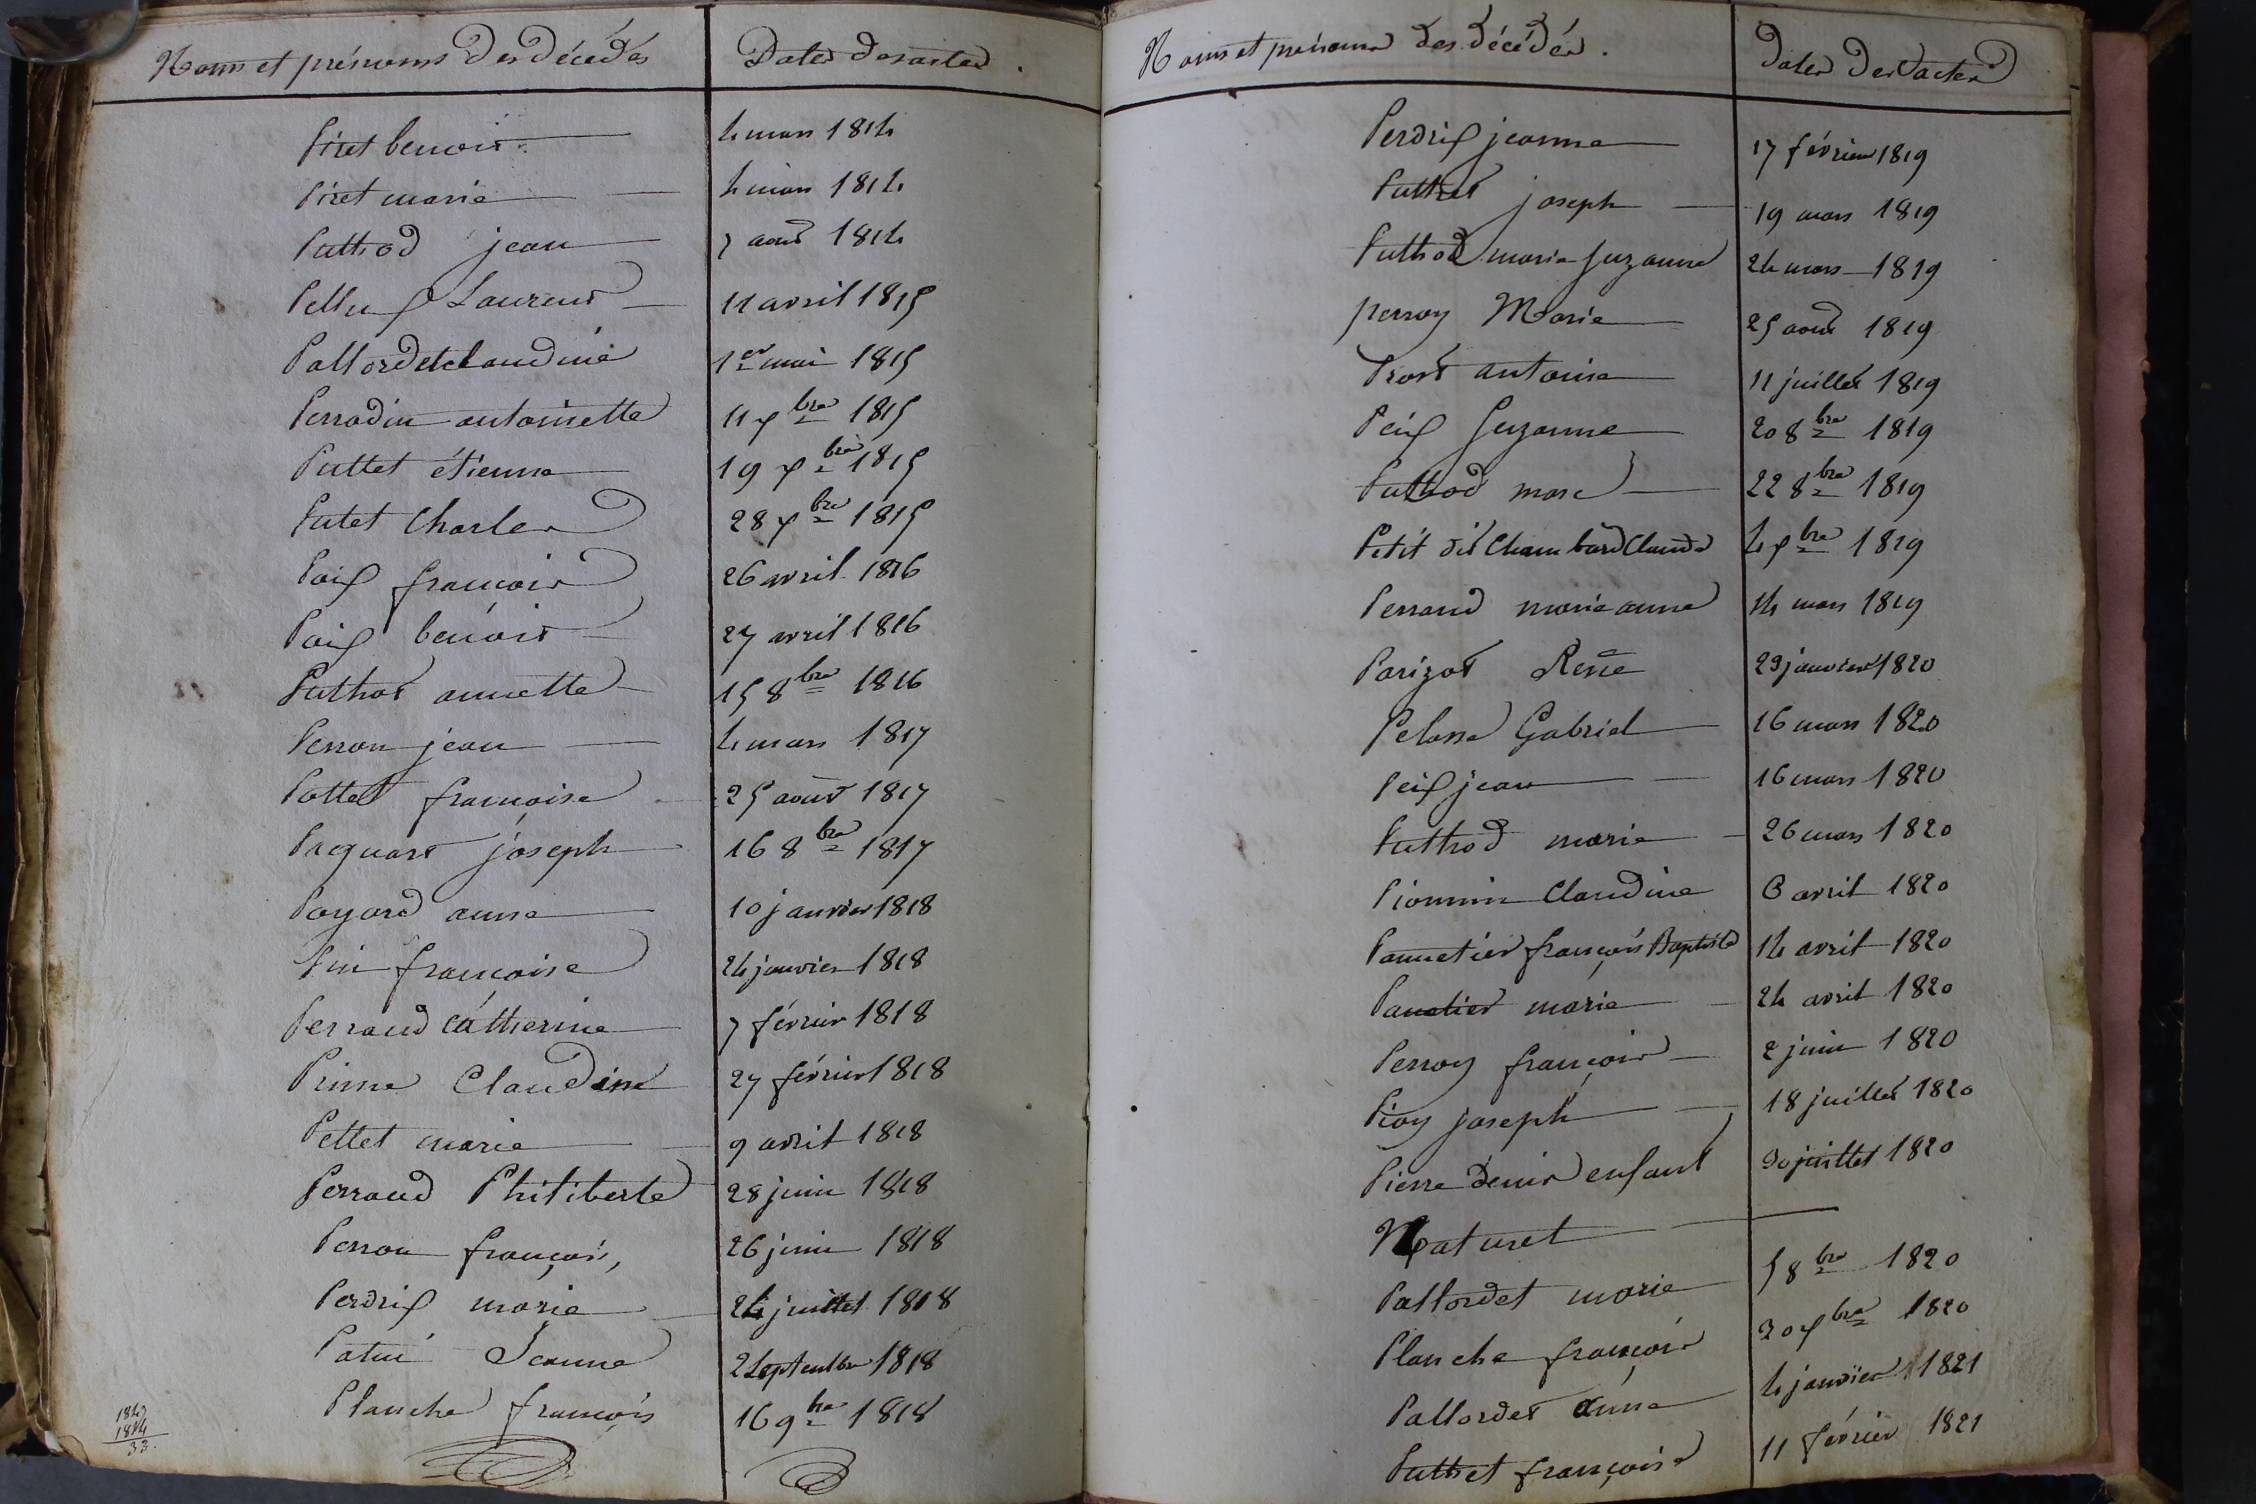 Noms et prénoms des décédés
Dates des actes.
Piret benoit
4 mars 1814
Piret marie
4 mars 1814
Puthod jean
7 aout 1814
Pellux Laurent
11 avril 1815
Pallordet claudine
1er mai 1815
Perradin antoinette
11 xbre 1815
Puttet étienne
19 xbre 1815
Putet Charles
28 xbre 1815
Paix francois
26 avril 1816
Paix benoit
27 avril 1816
Puthot annette
15 8bre 1816
Perron jean
4 mars 1817
Pottet francoise
25 aout 1817
Paquart joseph
16 8bre 1817
Poyard anne
10 janvier 1818
Pui françoise
24 janvier 1818
Perraud Catherine
7 février 1818
Prime Claudine
27 février 1818
Pettet marie
9 avril 1818
Perraud Philiberte
28 juin 1818
Perron françois,
26 juin 1818
Perdrix marie
24 juillet 1818
Patin Jeanne
2 septembre 1818
Planche françois
16 9bre 1818
1847
1814
33.
Noms et prénoms des décédés.
Dates des actes
Perdrix jeanne
17 février 1819
Puthet joseph
19 mars 1819
Puthod marie suzanne
24 mars 1819
perroy Marie
25 aout 1819
Prost antoine
11 juillet 1819
Peix Suzanne
20 8bre 1819
Puthod marc
22 8bre 1819
Petit dit Chambard Claude
4 xbre 1819
Perraud marie anne
14 mars 1819
Parizot René
29 janvier 1820
Pelosse Gabriel
16 mars 1820
Peix jean
16 mars 1820
Puthod marie
26 mars 1820
Pionnin Claudine
6 avril 1820
Pannetier françois Baptiste
14 avril 1820
Panetier marie
24 avril 1820
Perroy françois
2 juin 1820
Picoy joseph
18 juillet 1820
Pierre Denis enfant
30 juillet 1820
Naturel
Pallordet marie
5 8bre 1820
Planche françois
30 xbre 1820
Pallordet anne
4 janvier 1821
Puthet françoise
11 février 1821